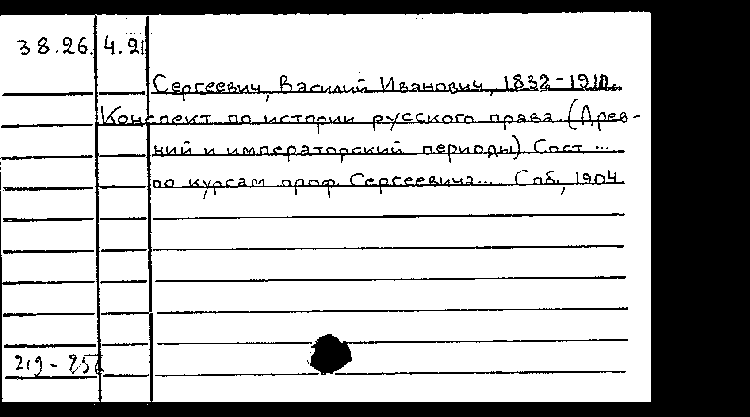 38.26. 4.21
Сергеевич, Василий Иванович, 1832-1910.
Конспект по истории русского права (Древ-
ний и императорский периоды) Сост ...
по курсам проф. Сергеевича... Спб., 1904
219-